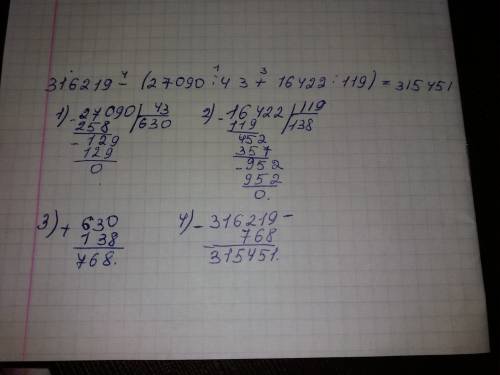 316219 - (27090 : 43 + 16422 : 119) = 315451
4 1 3
1) - 27090 | 43 2) - 16422 | 119
258 630 119 138
- 129 452
129 357
0 - 952
952
0.
3) + 630 4) - 316219 -
138 768
768. 315451.